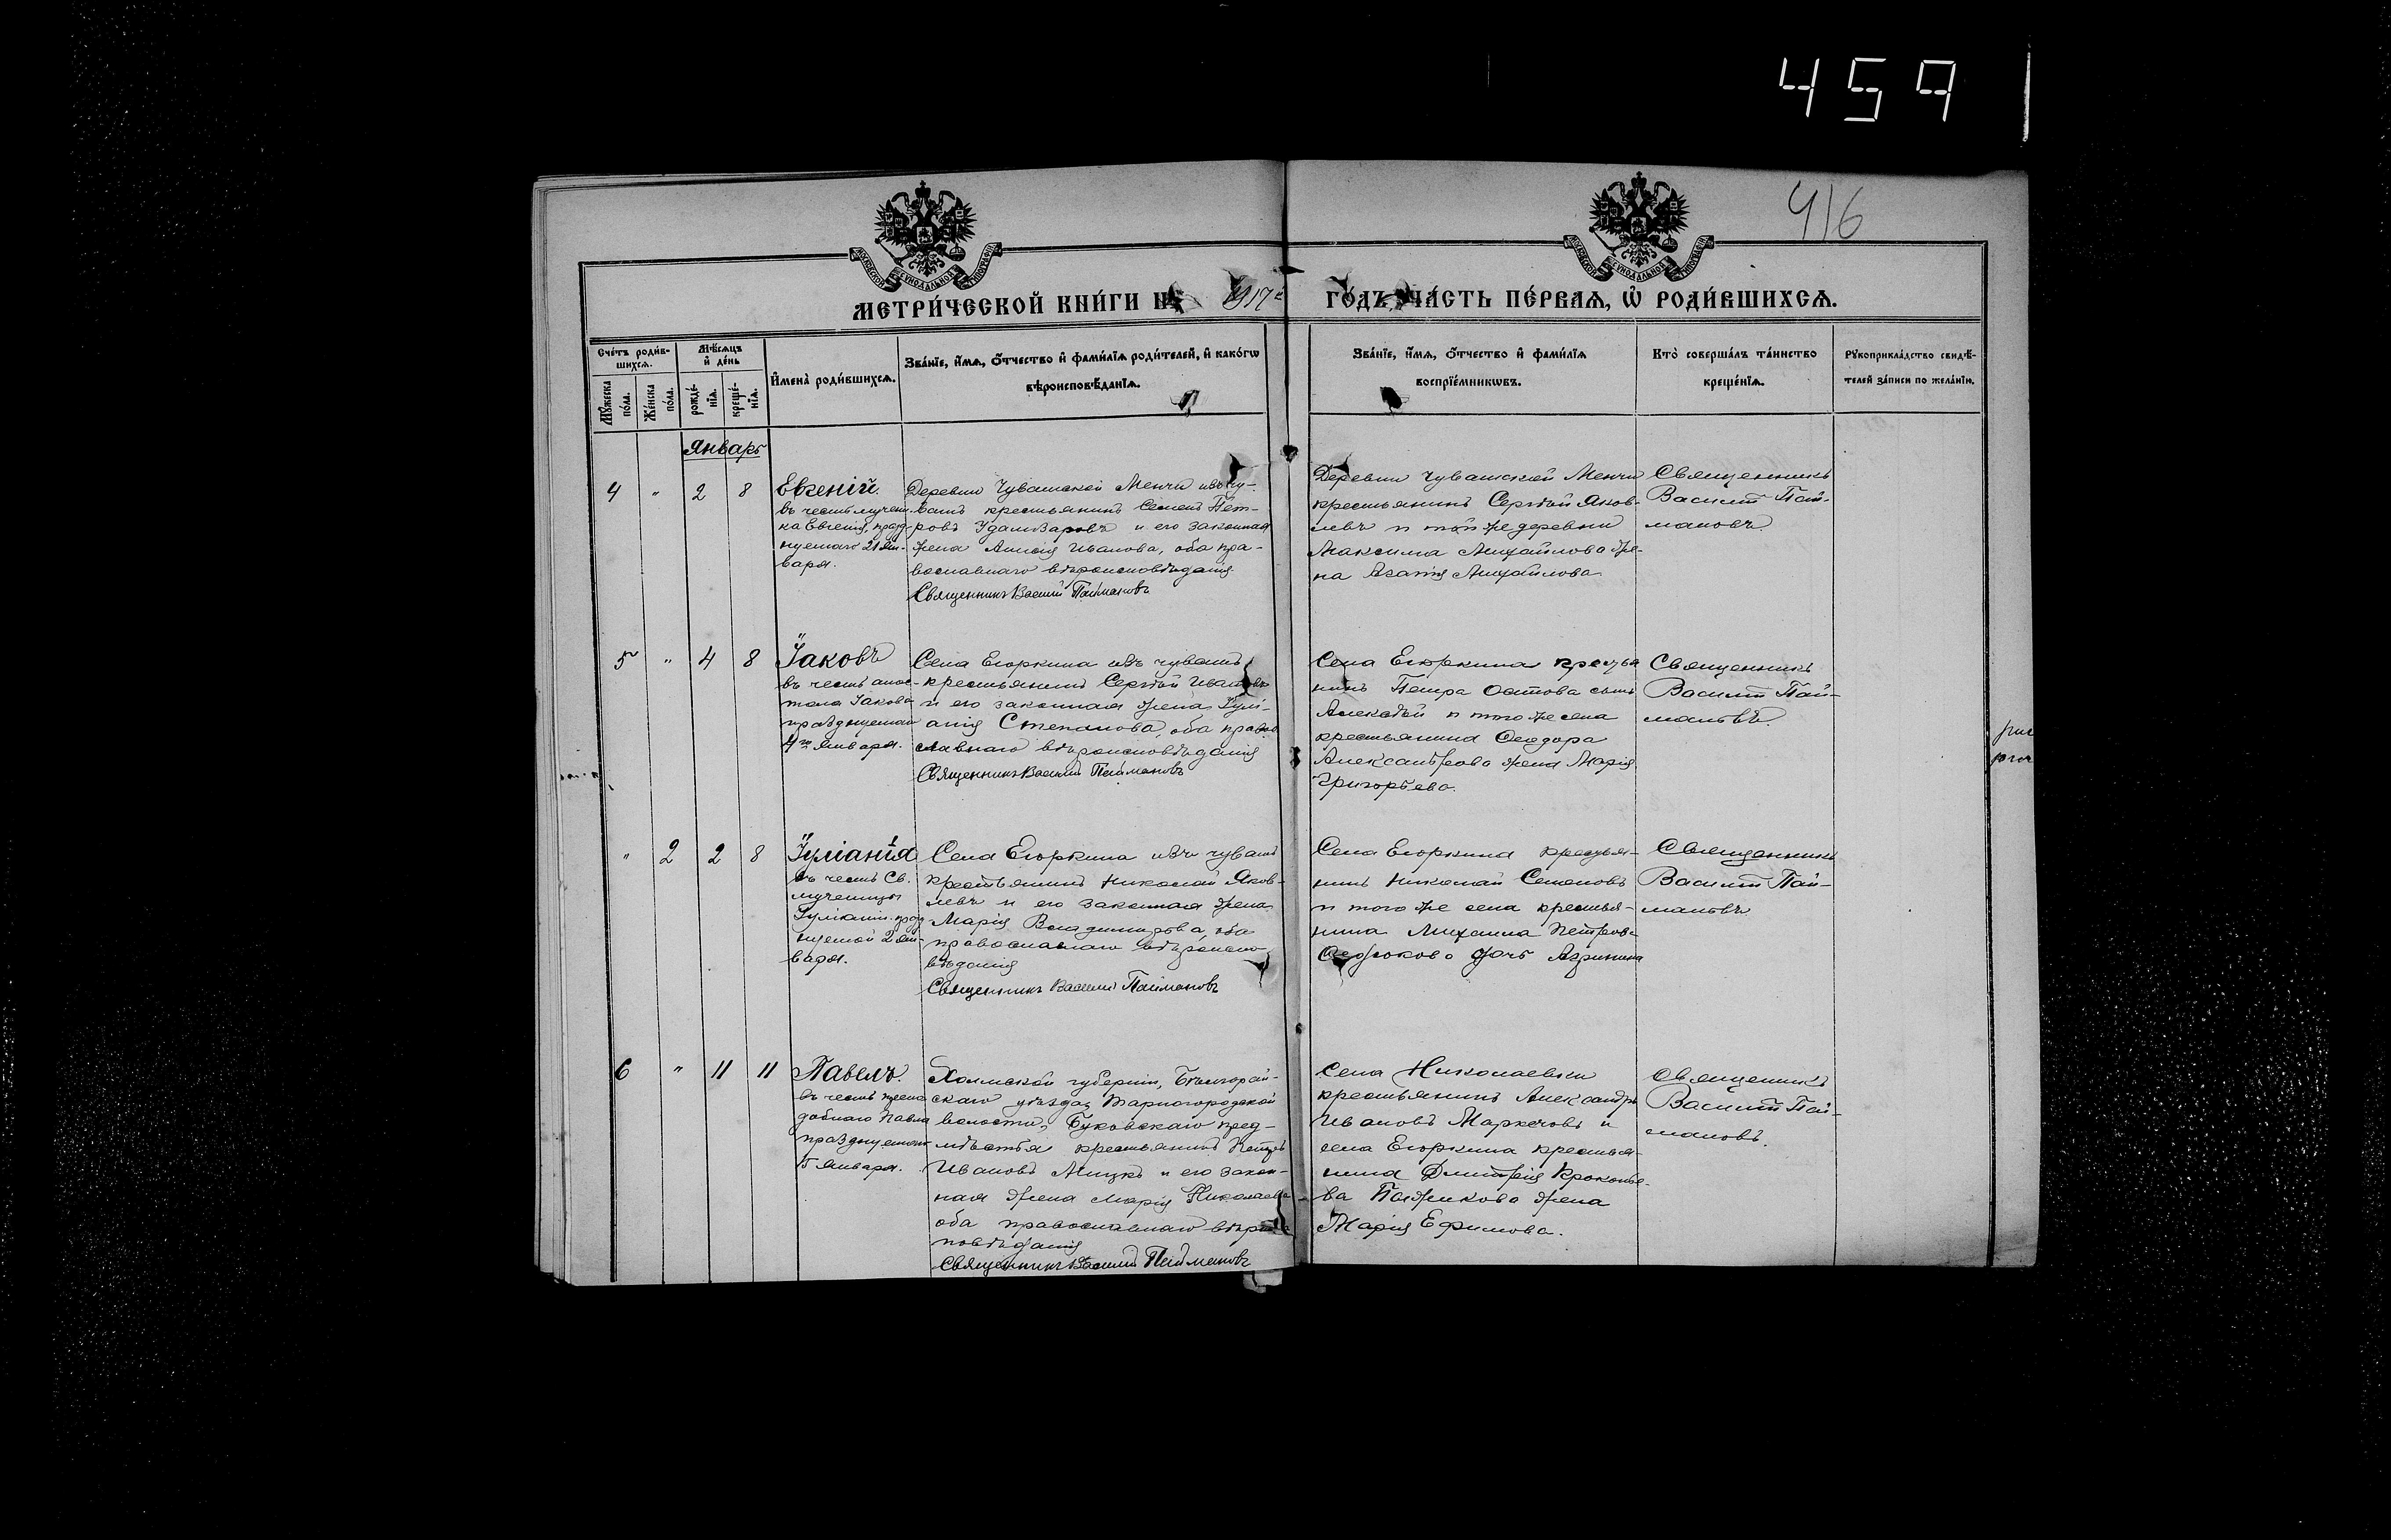 459
416
МЕТРИЧЕСКОЙ КНИГИ НА 1917й ГОДЪ, ЧАСТЬ ПЕРВАЯ, Ѡ РОДИВШИХСЯ.
Счетъ родив-
шихся.
Мужеска
пола.
Женска
пола.
Мѣсяцъ
и день
рожде-
нія.
креще-
нія.
Имена родившихся.
Званіе, имя, отчество и фамилія родителей, и какогѡ
вѣроисповѣданія.
Званіе, имя, отчество и фамилія
воспріемникѡвъ.
Кто совершалъ таинство
крещенія.
Рукоприкладство свидѣ-
телей записи по желанію.
Январь
4 " 2 8
Евгеній.
въ честь мучени-
ка Евгенія, празд-
нуемаго 21 Ян-
варя.
Деревни Чувашской Менчи изъ чу-
вашъ крестьянинъ Семенъ Пет-
ровъ и его законная
жена Иванова, оба пра-
вославнаго вѣроисповѣданія
Священникъ Василій Паймановъ
Деревни Чувашской Менчи
крестьянинъ Сергѣй Яков-
левъ и той же деревни
Максима Михайлова же-
на Агаѳія Михайлова.
Священникъ
Василій Пай-
мановъ
5 " 4 8
Іаковъ
въ честь апос-
тола Іакова
празднуемаго
4го Января.
Села Егоркина изъ чувашъ
крестьянинъ Сергѣй Ивановъ
и его законная жена Іулі-
анія Степанова, оба право-
славнаго вѣроисповѣданія
Священникъ Василій Паймановъ
Села Егоркина крестья
нинъ Петра сынъ
Алексѣй и того же села
крестьянина Ѳеодора
Александрова жена Марія
Григорьева.
Священникъ
Василій Пай-
мановъ.
" 2 2 8
Іуліанія
въ честь Св.
мученицы
Іуліаніи празд-
нуемой 2 Ян-
варя.
Села Егоркина изъ чувашъ
крестьянинъ Николай Яков-
левъ и его законная жена
Марія Владимирова, оба
православнаго вѣроиспо-
вѣданія
Священникъ Василій Паймановъ
Села Егоркина крестья-
нинъ Николай Семеновъ
и того же села крестья-
нина Михаила Петрова
дочь Агрипина
Священникъ
Василій Пай-
мановъ
6 " 11 11
Павелъ.
въ честь препо
добнаго Павла
празднуемаго
15 Января.
Холмской губерніи, Бѣлгорай-
скаго уѣзда, Тарногородской
волости, Буковскаго пред-
мѣстья крестьянинъ Петръ
Ивановъ Мицкъ и его закон-
ная жена Марія Николаева
оба православнаго вѣроис
повѣданія
Священникъ Василій Паймановъ
Села Николаевки
крестьянинъ Александръ
Ивановъ и
села Егоркина крестья-
нина Димитрія Прокопье-
ва жена
Марія Ефимова.
Священникъ
Василій Пай-
мановъ.